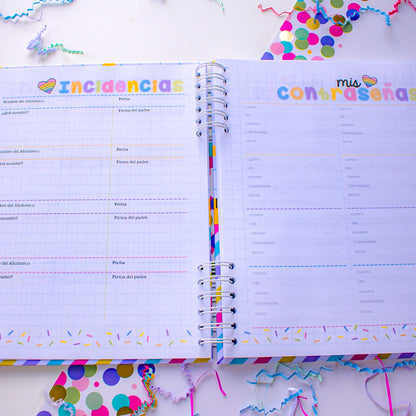 Incidencias
Nombre del Alumno(a): Fecha
¿Qué sucedió? Firma del padre
Nombre del Alumno(a): Fecha
¿Qué sucedió? Firma del padre
Nombre del Alumno(a): Fecha
¿Qué sucedió? Firma del padre
bre del Alumno(a): Fecha
sucedió? Firma del padre
mis
contraseñas
CUENTA CUENTA
URL URL
USUARIO USUARIO
CONTRASEÑA CONTRASEÑA
NOTAS NOTAS
CUENTA CUENTA
URL URL
USUARIO USUARIO
CONTRASEÑA CONTRASEÑA
NOTAS NOTAS
CUENTA CUENTA
URL URL
USUARIO USUARIO
CONTRASEÑA CONTRASEÑA
NOTAS NOTAS
CUENTA CUENTA
URL URL
USUARIO USUARIO
CONTRASEÑA CONTRASEÑA
NOTAS NOTAS